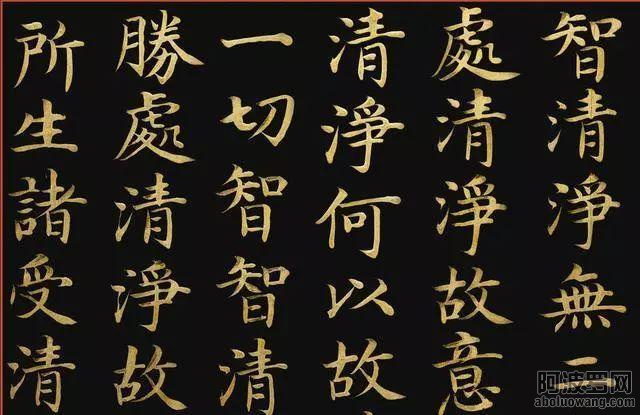 智清淨無二
處清淨故意
清淨何以故
一切智智清
勝處清淨故
所生諸受清
阿波罗网
aboluowang.com